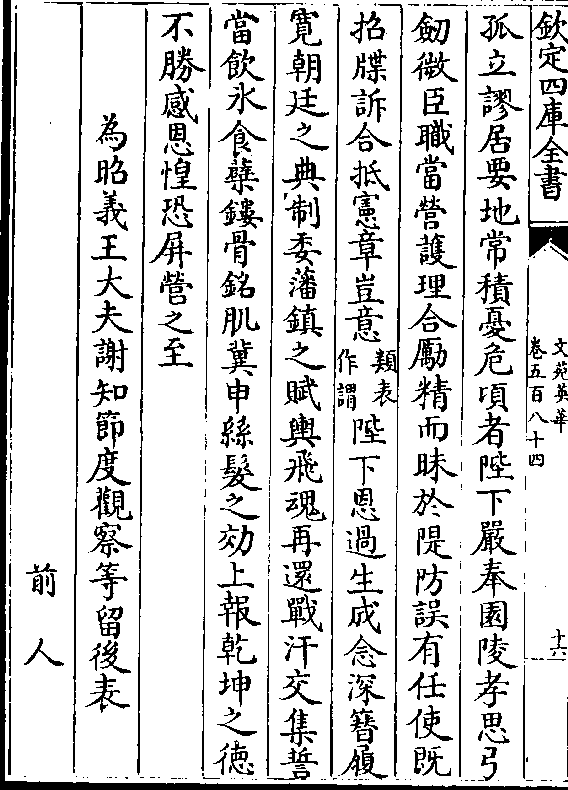 欽定四庫全書
文苑英華
卷五百八十四
十六
孤立謬居要地常積憂危頃者陛下嚴奉園陵孝思弓
劒微臣職當營護理合勵精而昧於隄防誤有任使既
招牒訴合抵憲章豈意類表作謂陛下恩過生成念深簪履
寛朝廷之典制委藩鎮之賦輿飛魂再還戰汗交集誓
當飲氷食蘖鏤骨銘肌冀申絲髮之効上報乾坤之德
不勝感恩惶恐屏營之至
為昭義王大夫謝知節度觀察等留後表
前人